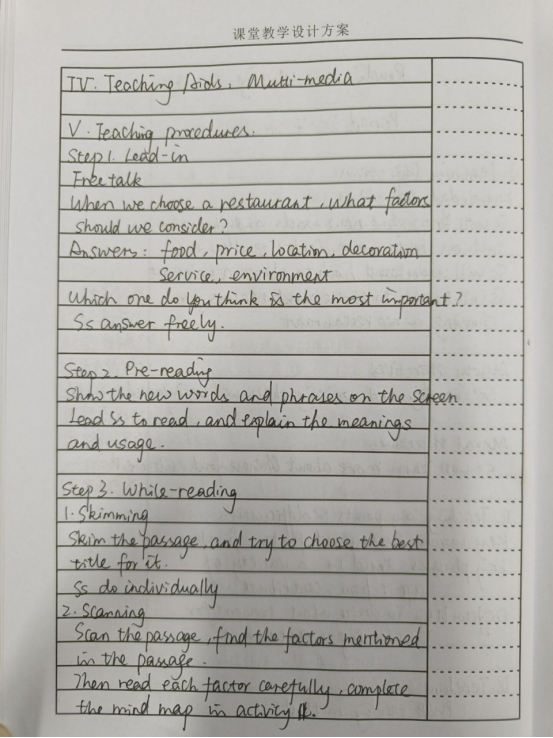 课堂教学设计方案
IV. Teaching Aids. Multi-media
V. Teaching procedures.
Step 1. Lead-in
Free talk
When we choose a restaurant, what factors
should we consider?
Answers: food, price, location, decoration
Service, environment
Which one do you think is the most important?
Ss answer freely.
Step 2. Pre-reading
Show the new words and phrases on the screen
Lead Ss to read, and explain the meanings
and usage.
Step 3. While-reading
1. Skimming
Skim the passage, and try to choose the best
title for it.
Ss do individually
2. Scanning
Scan the passage, find the factors mentioned
in the passage.
Then read each factor carefully, complete
the mind map in activity